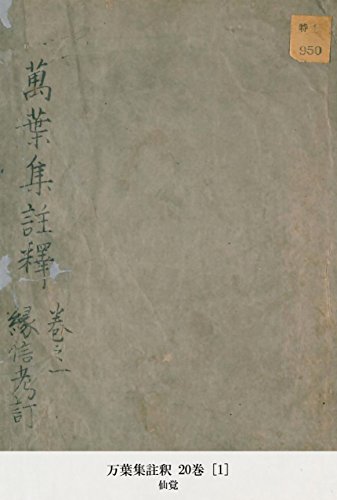 特1
950
萬葉集註釋
巻之一
縁信考訂
万葉集註釈 20巻 [1]
仙覚